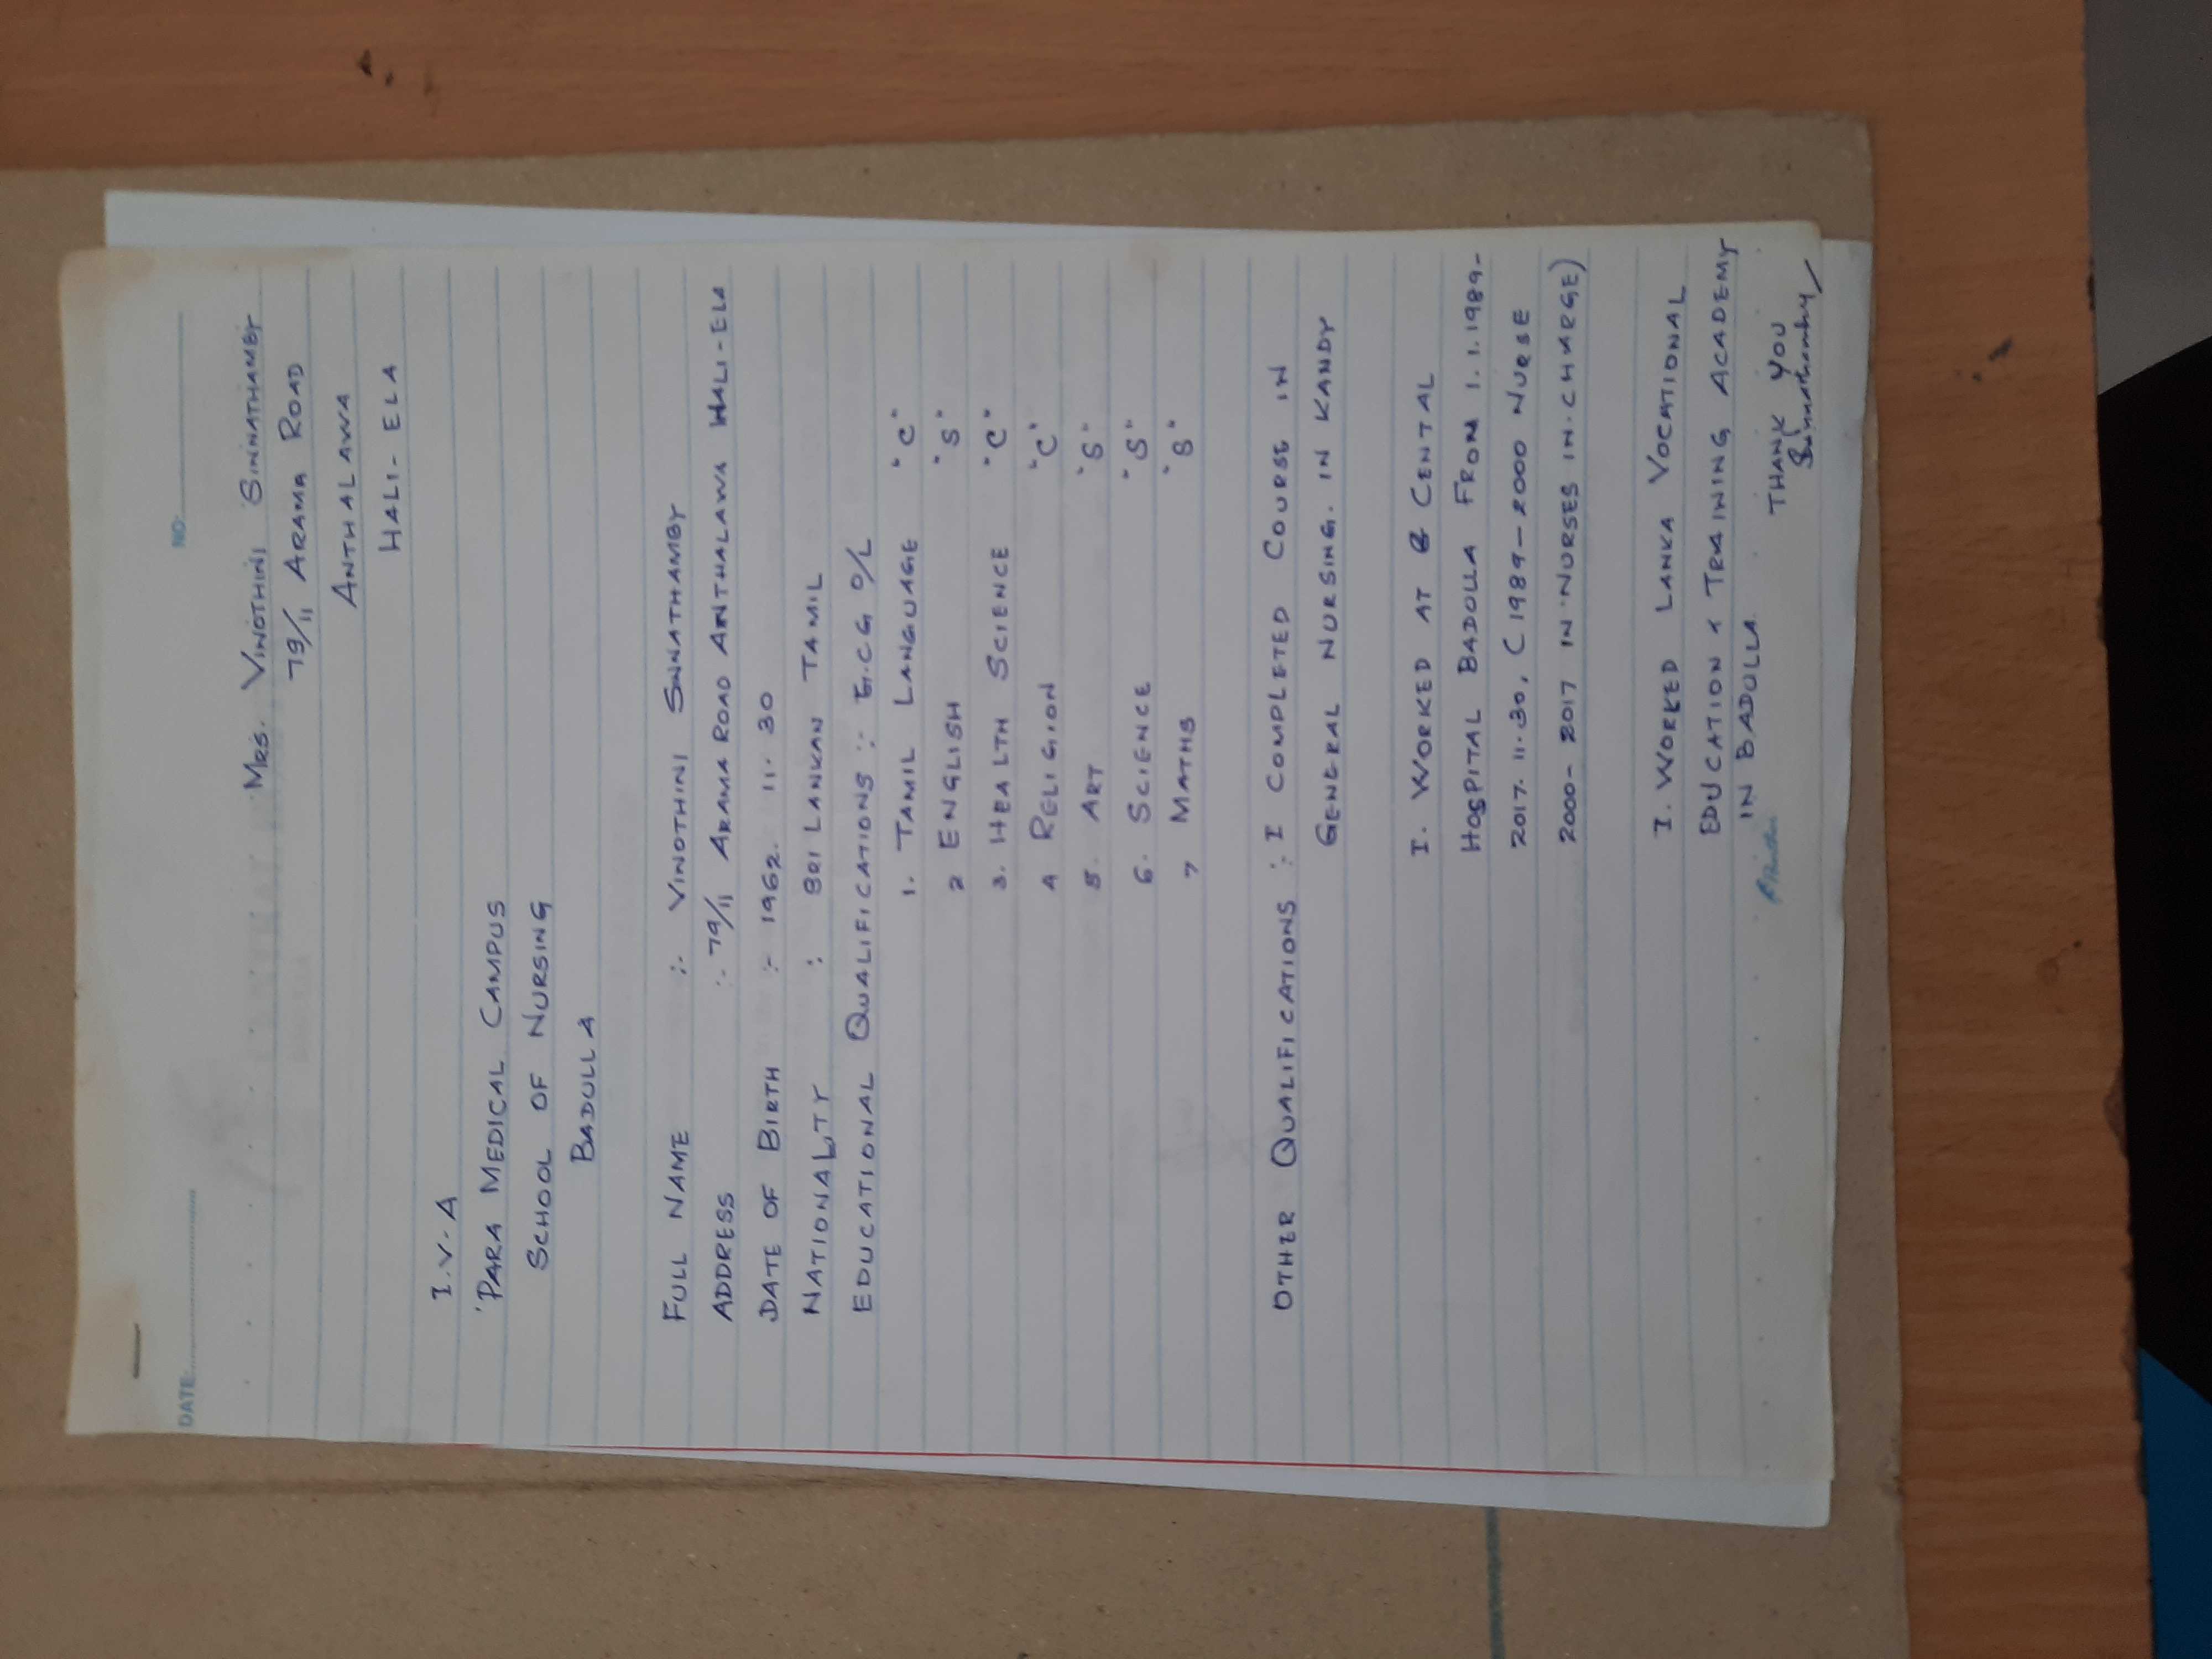 DATE: NO:
MRS. VINOTHINI SINNATHAMBY
79/11 ARAMA ROAD
ANTHALAWA
HALI-ELA
I.V.A
PARA MEDICAL CAMPUS
SCHOOL OF NURSING
BADULLA
FULL NAME :- VINOTHINI SINNATHAMBY
ADDRESS :- 79/11 ARAMA ROAD ANTHALAWA HALI-ELA
DATE OF BIRTH :- 1962. 11. 30
NATIONALITY : SRI LANKAN TAMIL
EDUCATIONAL QUALIFICATIONS :- G.C.G O/L
1. TAMIL LANGUAGE "C"
2 ENGLISH "S"
3. HEALTH SCIENCE "C"
4 RELIGION "C"
5. ART "S"
6. SCIENCE "S"
7 MATHS "S"
OTHER QUALIFICATIONS :- I COMPLETED COURSE IN
GENERAL NURSING. IN KANDY
I. WORKED AT CENTAL
HOSPITAL BADULLA FROM 1.1.1989-
2017.11.30, (1989-2000 NURSE
2000-2017 IN NURSES IN.CHARGE)
I. WORKED LANKA VOCATIONAL
EDUCATION & TRAINING ACADEMY
IN BADULLA.
THANK YOU
Sinnathamby